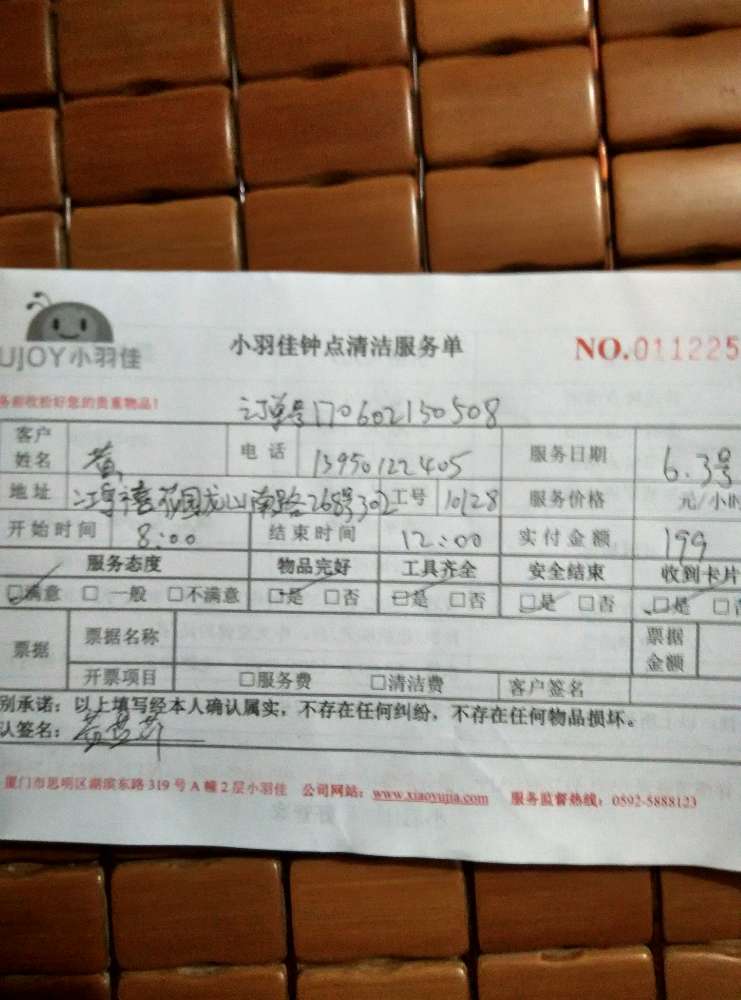 UJOY小羽佳
小羽佳钟点清洁服务单
NO.011225
务前收拾好您的贵重物品!
订单号170602150508
客户姓名 黄 电话 13950122405 服务日期 6.3号
地址 禧花园龙山南路268号302 工号 10128 服务价格 元/小时
开始时间 8:00 结束时间 12:00 实付金额 199
服务态度 物品完好 工具齐全 安全结束 收到卡片
□满意 □一般 □不满意 □是 □否 □是 □否 □是 □否 □是 □否
票据 票据名称 票据金额
开票项目 □服务费 □清洁费 客户签名
别承诺:以上填写经本人确认属实,不存在任何纠纷,不存在任何物品损坏。
认签名:
厦门市思明区湖滨东路319号A幢2层小羽佳 公司网站:www.xiaoyujia.com 服务监督热线:0592-5888123